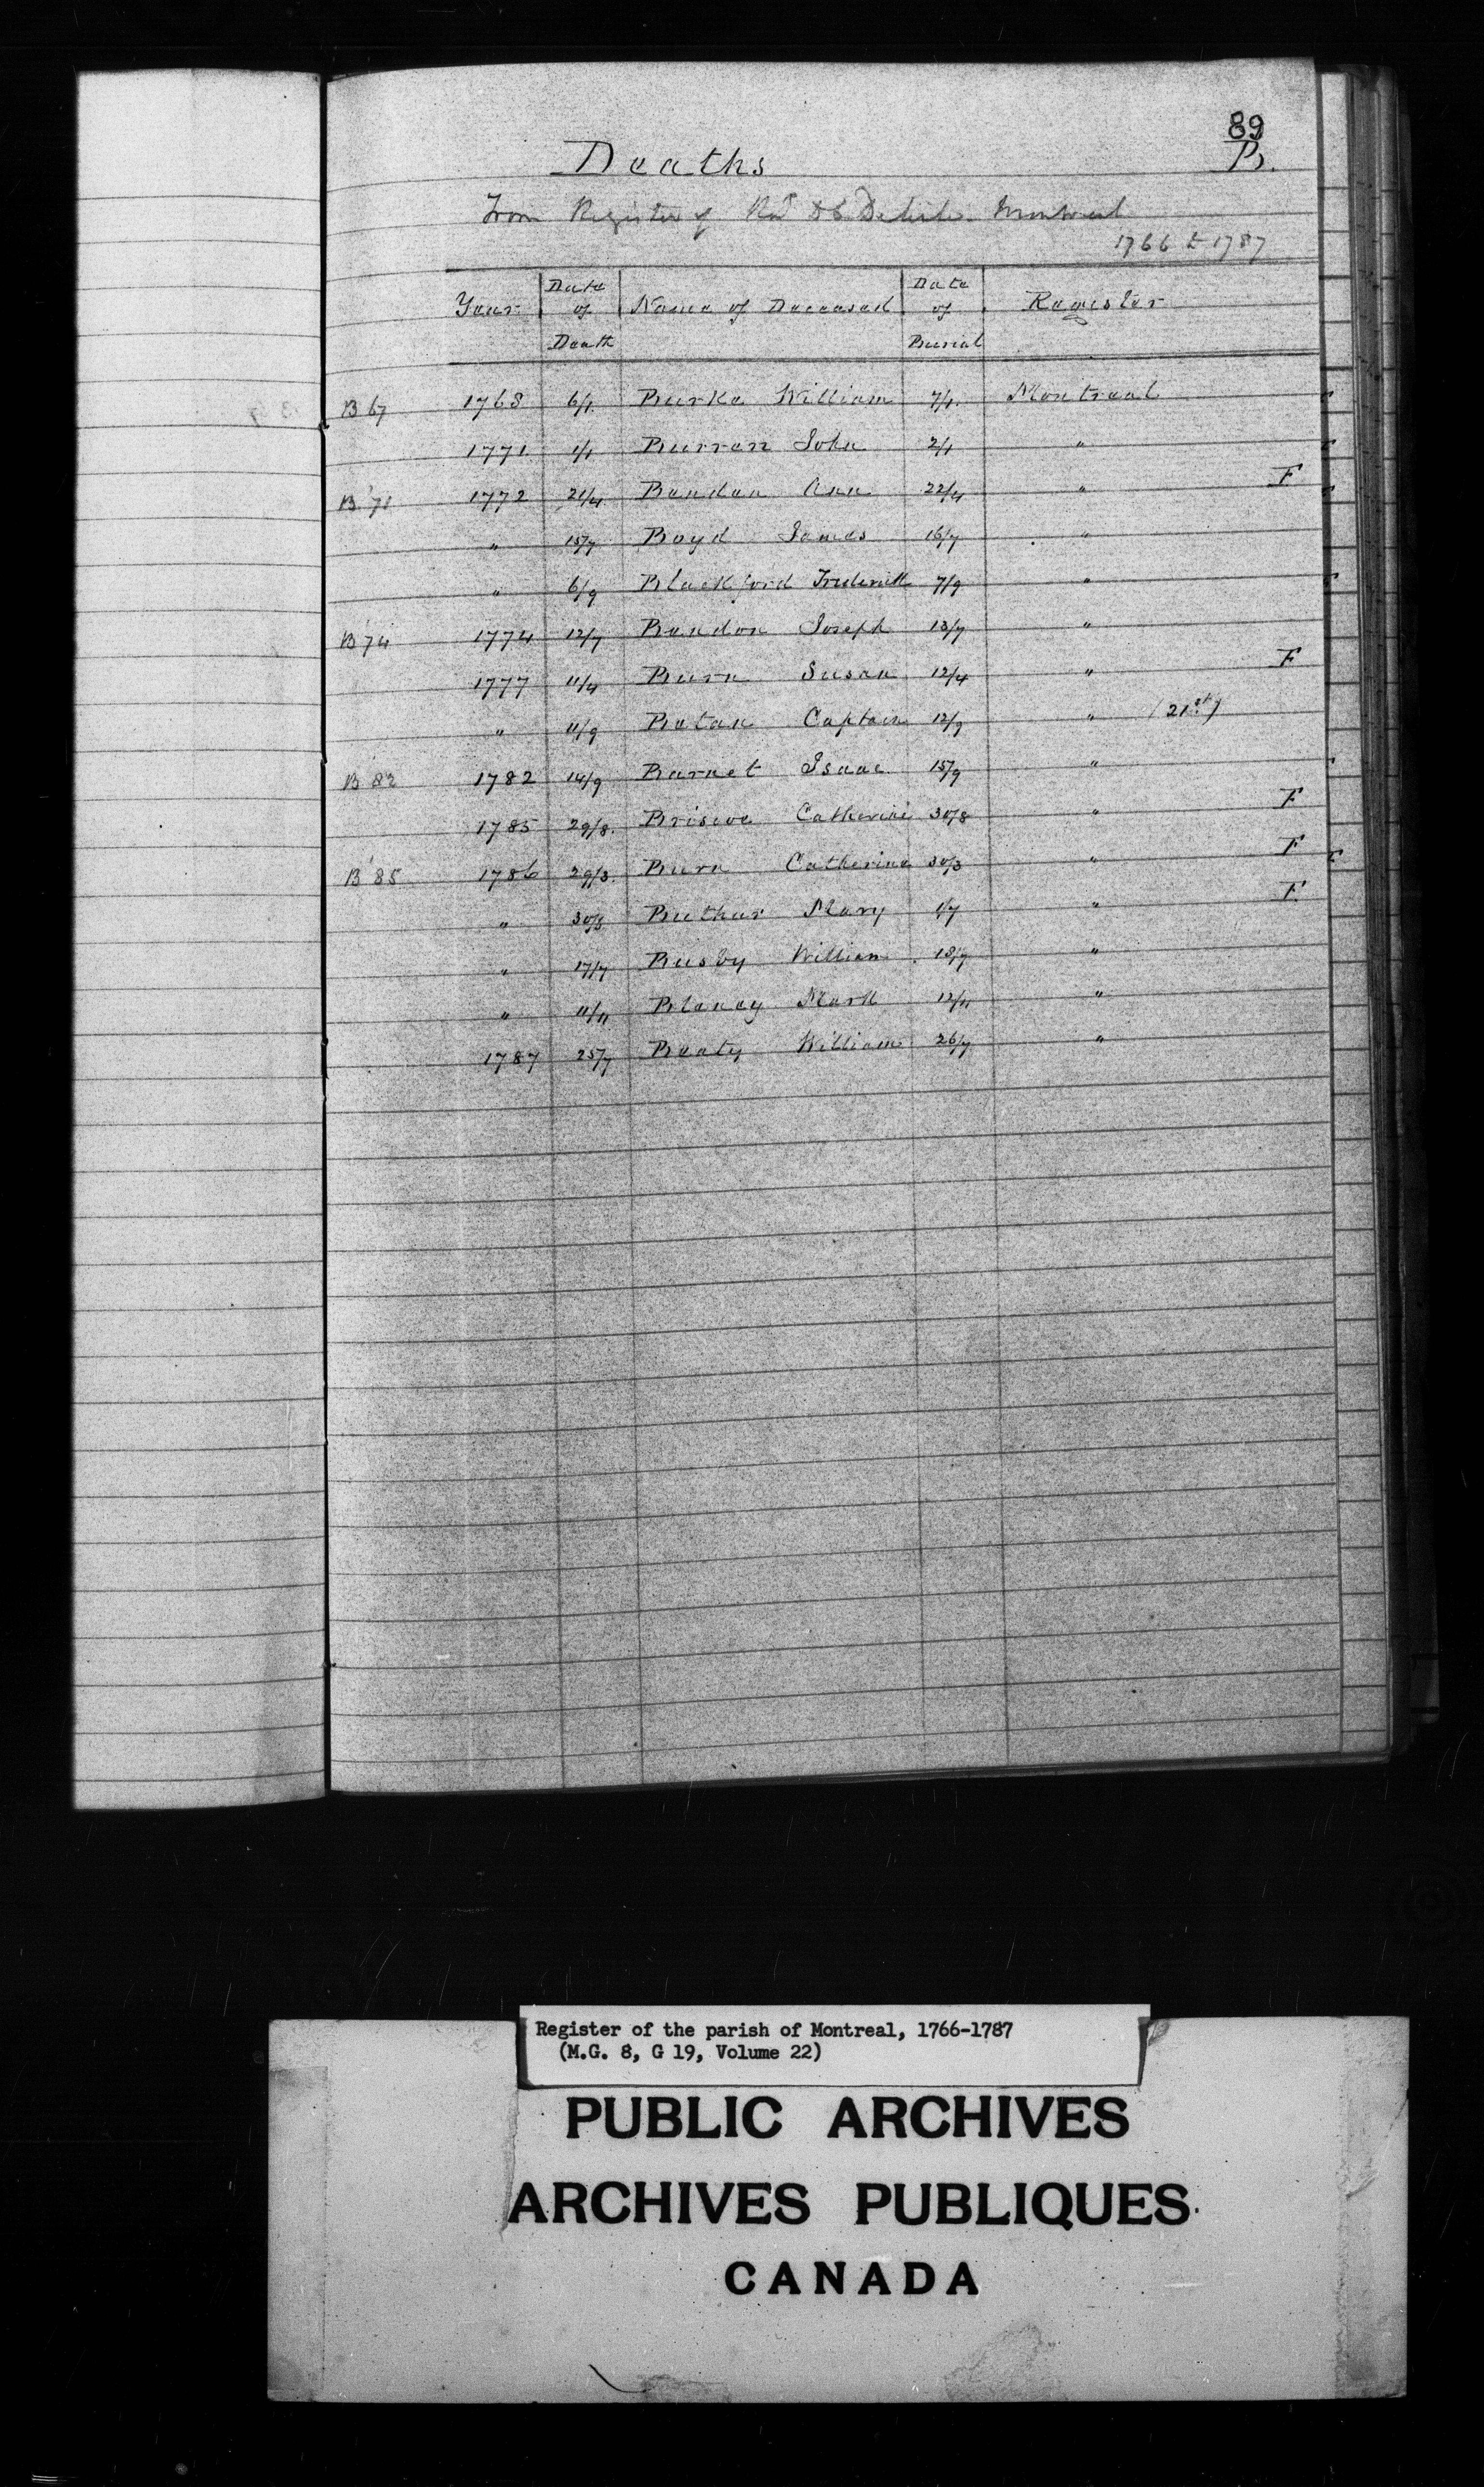 89
B.
Deaths
From Register of Revd D C Delisle Montreal
1766 to 1787
Year Date of Death Name of Deceased Date of Burial Register
B 67 1768 6/1 Burke William 7/1 Montreal
1771 1/1 Burren John 2/1 "
B 71 1772 21/4 Bandon Ann 22/4 " F
" 15/7 Boyd James 16/7 "
" 6/9 Blackford Frederick 7/9 "
B 74 1774 12/7 Bondon Joseph 13/7 "
1777 11/4 Burn Susan 12/4 " F
" 11/9 Botan Captain 12/9 " (21st)
B 82 1782 14/9 Barnet Isaac 15/9 "
1785 29/8 Briscoe Catherine 30/8 " F
B 85 1786 29/3 Burn Catherine 30/3 " F
" Buthur Mary 1/7 " F
" 17/7 Busby William 18/7 "
" 11/11 Blaney Mark 12/11 "
1787 25/7 Beaty William 26/7 "
Register of the parish of Montreal, 1766-1787
(M.G. 8, G 19, Volume 22)
PUBLIC ARCHIVES
ARCHIVES PUBLIQUES
CANADA